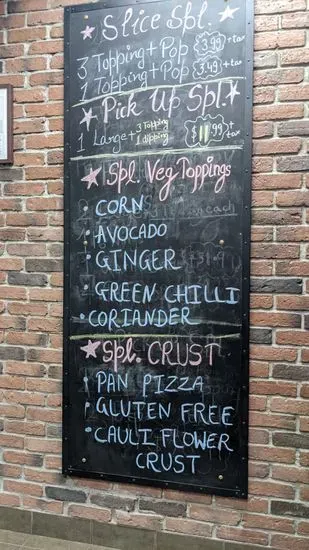 ★ Slice Spl. ★
3 Topping + Pop 3.99 + tax
1 Topping + Pop 3.49 + tax
★ Pick Up Spl. ★
1 Large + 3 Topping
1 dipping $11.99 + tax
★ Spl. Veg Toppings
• CORN
• AVOCADO
• GINGER
• GREEN CHILLI
• CORIANDER
★ Spl. CRUST
• PAN PIZZA
• GLUTEN FREE
• CAULIFLOWER
CRUST